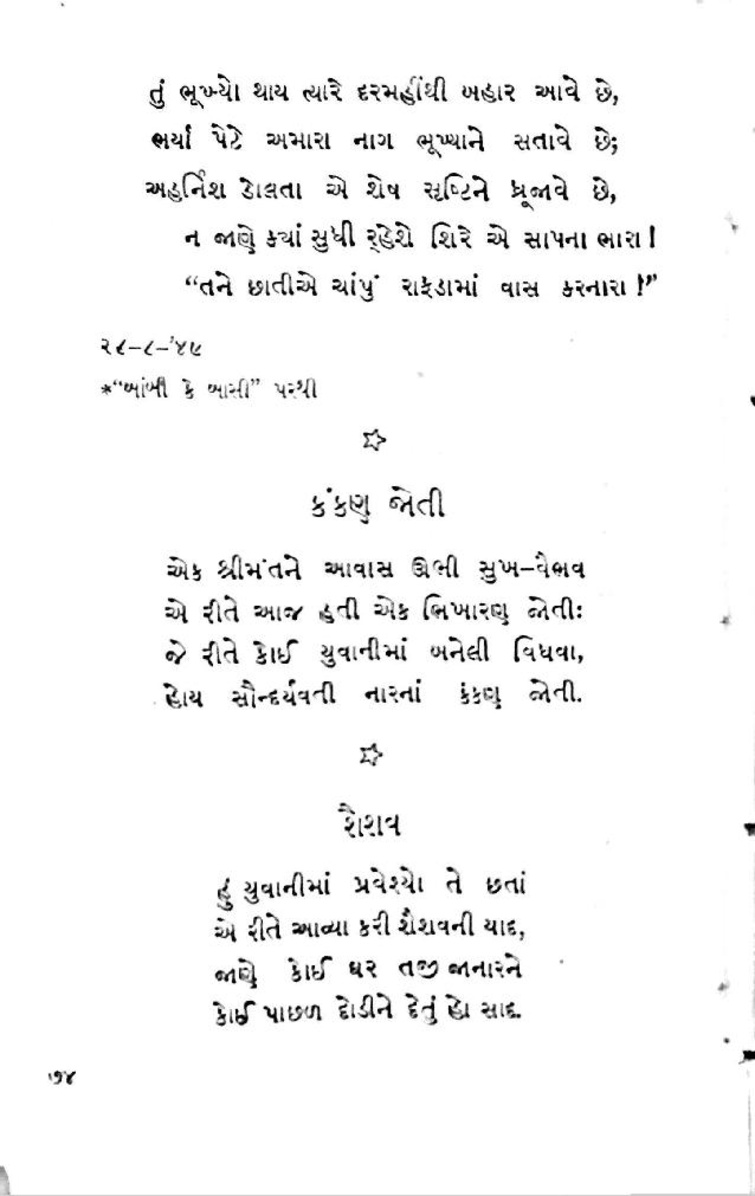 તું ભૂખ્યો થાય ત્યારે દરમહીંથી બહાર આવે છે,
ભર્યા પેટે અમારા નાગ ભૂખ્યાને સતાવે છે;
અહર્નિશ ડોલતા એ શેષ સૃષ્ટિને ધ્રૂજાવે છે,
ન જાણે ક્યાં સુધી ર્‌હેશે શિરે એ સાપના ભારા!
“તને છાતીએ ચાંપું રાફડામાં વાસ કરનારા !”
૨૮-૮-'૪૯
*“બાંબી કે બાસી” પરથી
કંકણ જોતી
એક શ્રીમંતને આવાસ ઊભી સુખ-વૈભવ
એ રીતે આજ હતી એક ભિખારણ જોતીઃ
જે રીતે કોઈ યુવાનીમાં બનેલી વિધવા,
હોય સૌન્દર્યવતી નારનાં કંકણ જોતી.
શૈશવ
હું યુવાનીમાં પ્રવેશ્યો તે છતાં
એ રીતે આવ્યા કરી શૈશવની યાદ,
જાણે કોઈ ઘર તજી જાનારને
કોઈ પાછળ દોડીને દેતું હો સાદ.
૭૪